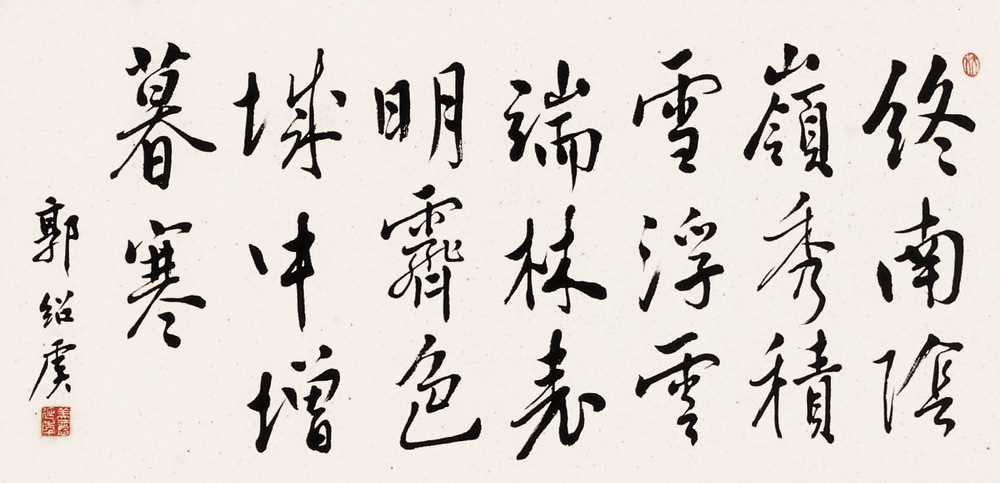 终南陰
嶺秀積
雪浮雲
端林表
明霽色
城中增
暮寒
郭绍虞